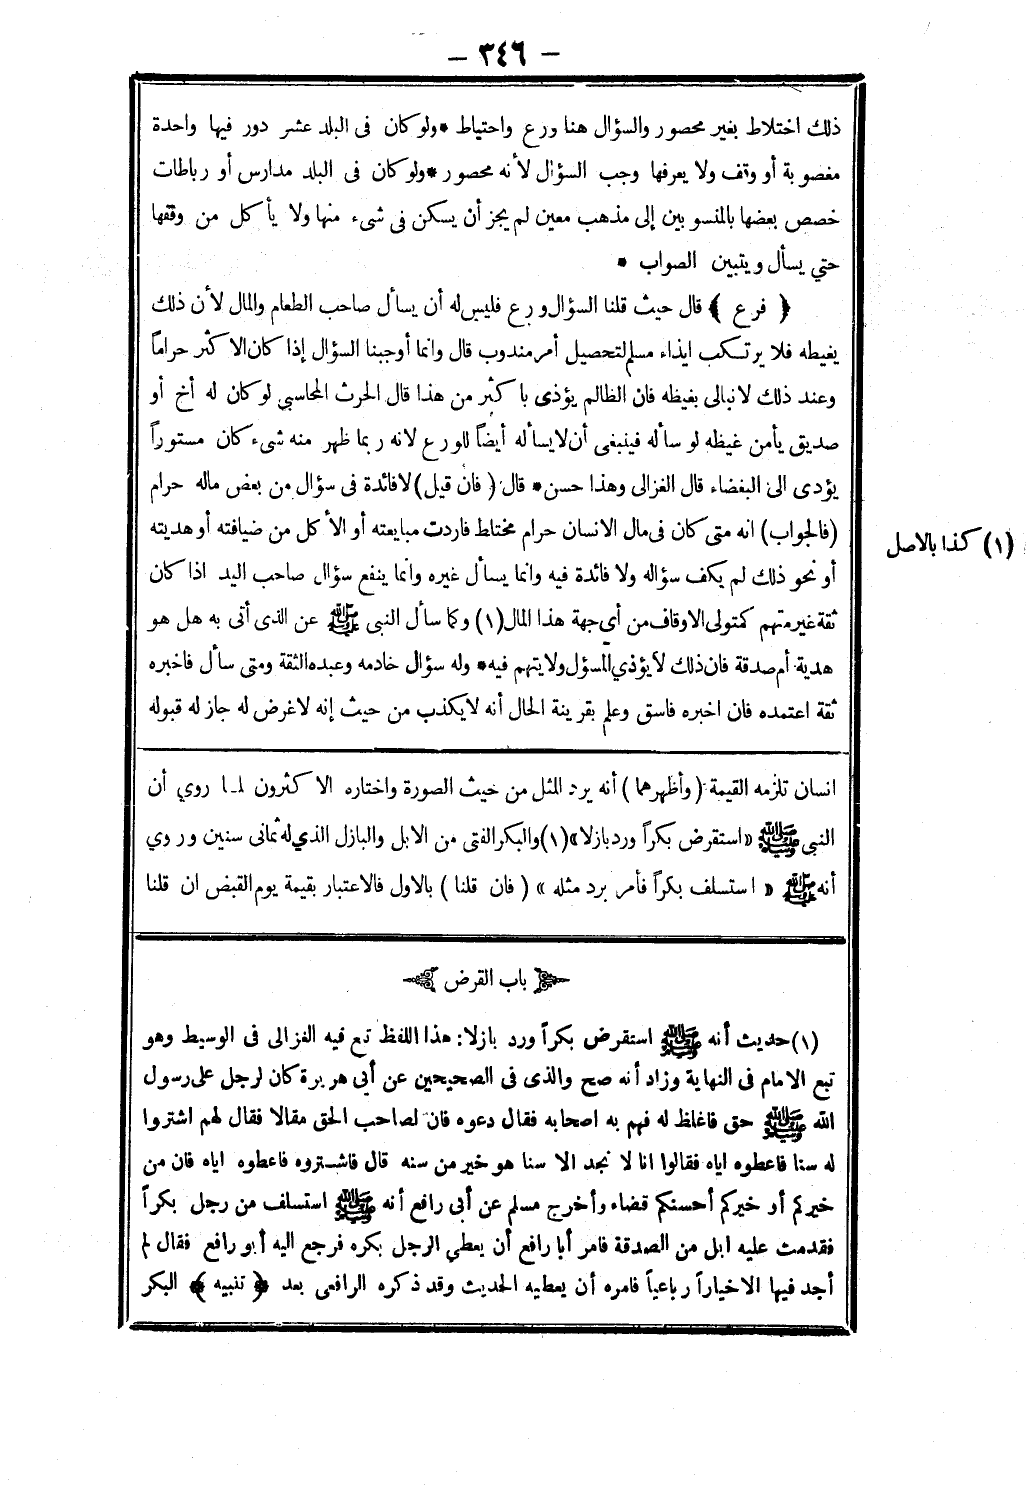 – ٣٤٦ –
ذلك اختلاط بغير محصور والسؤال هنا ورع واحتياط * ولو كان فى البلد عشر دور فيها واحدة
مغصوبة أو وقف ولا يعرفها وجب السؤال لأنه محصور * ولو كان فى البلد مدارس أو رباطات
خصص بعضها بالمنسوبين إلى مذهب معين لم يجز أن يسكن فى شىء منها ولا يأكل من وقفها
حتي يسأل ويتبين الصواب *
﴿ فرع ﴾ قال حيث قلنا السؤال ورع فليس له أن يسأل صاحب الطعام والمال لأن ذلك
يغيظه فلا يرتكب ايذاء مسلم لتحصيل أمر مندوب قال وانما أوجبنا السؤال إذا كان الاكثر حراماً
وعند ذلك لا نبالى بغيظه فان الظالم يؤذى باكثر من هذا قال الحرث المحاسبي لو كان له أخ أو
صديق يأمن غيظه لو سأله فينبغى أن لا يسأله أيضاً للورع لانه ربما ظهر منه شىء كان مستوراً
يؤدى الى البغضاء قال الغزالى وهذا حسن * قال ( فان قيل ) لا فائدة فى سؤال من بعض ماله حرام
(فالجواب) انه متى كان فى مال الانسان حرام مختلط فاردت مبايعته أو الأكل من ضيافته أو هديته
أو نحو ذلك لم يكف سؤاله ولا فائدة فيه وانما يسأل غيره وانما ينفع سؤال صاحب اليد اذا كان
ثقة غير متهم كمتولى الاوقاف من أى جهة هذا المال (١) وكما سأل النبى ﷺ عن الذى أتى به هل هو
هدية أم صدقة فان ذلك لا يؤذي المسؤل ولا يتهم فيه * وله سؤال خادمه وعبده الثقة ومتى سأل فاخبره
ثقة اعتمده فان اخبره فاسق وعلم بقرينة الحال أنه لا يكذب من حيث إنه لا غرض له جاز له قبوله
(١) كذا بالاصل
انسان تلزمه القيمة ( وأظهرهما ) أنه يرد المثل من حيث الصورة واختاره الاكثرون لما روي أن
النبى ﷺ «استقرض بكراً ورد بازلا» (١) والبكر الفتى من الابل والبازل الذي له ثمانى سنين وروي
أنه ﷺ « استسلف بكراً فأمر برد مثله » ( فان قلنا ) بالاول فالاعتبار بقيمة يوم القبض ان قلنا
باب القرض
(١) حديث أنه ﷺ استقرض بكراً ورد بازلا: هذا اللفظ تبع فيه الغزالى فى الوسيط وهو
تبع الامام فى النهاية وزاد أنه صح والذى فى الصحيحين عن أبى هريرة كان لرجل على رسول
الله ﷺ حق فاغلظ له فهم به اصحابه فقال دعوه فان لصاحب الحق مقالا فقال لهم اشتروا
له سنا فاعطوه اياه فقالوا انا لا نجد الا سنا هو خير من سنه قال فاشتروه فاعطوه اياه فان من
خيركم أو خيركم أحسنكم قضاء وأخرج مسلم عن أبى رافع أنه ﷺ استسلف من رجل بكراً
فقدمت عليه ابل من الصدقة فامر أبا رافع أن يعطي الرجل بكره فرجع اليه أبو رافع فقال لم
أجد فيها الا خياراً رباعياً فامره أن يعطيه الحديث وقد ذكره الرافعى بعد ﴿ تنبيه ﴾ البكر